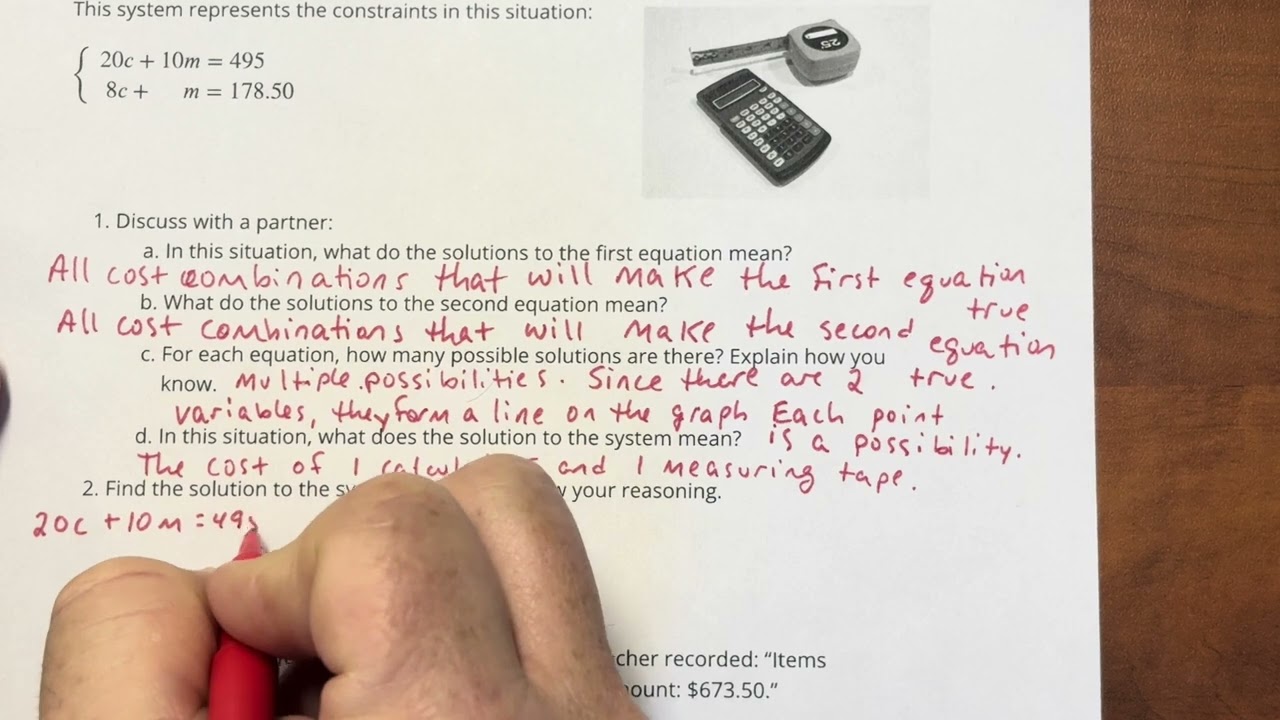 This system represents the constraints in this situation:
20c + 10m = 495
8c + m = 178.50
25'
1. Discuss with a partner:
a. In this situation, what do the solutions to the first equation mean?
All cost combinations that will make the first equation true
b. What do the solutions to the second equation mean?
All cost combinations that will make the second equation true.
c. For each equation, how many possible solutions are there? Explain how you
know. Multiple possibilities. Since there are 2
variables, they form a line on the graph Each point is a possibility.
d. In this situation, what does the solution to the system mean?
The cost of 1 and 1 measuring tape.
2. Find the solution to the your reasoning.
20c + 10m = 495
recorded: “Items
$673.50.”